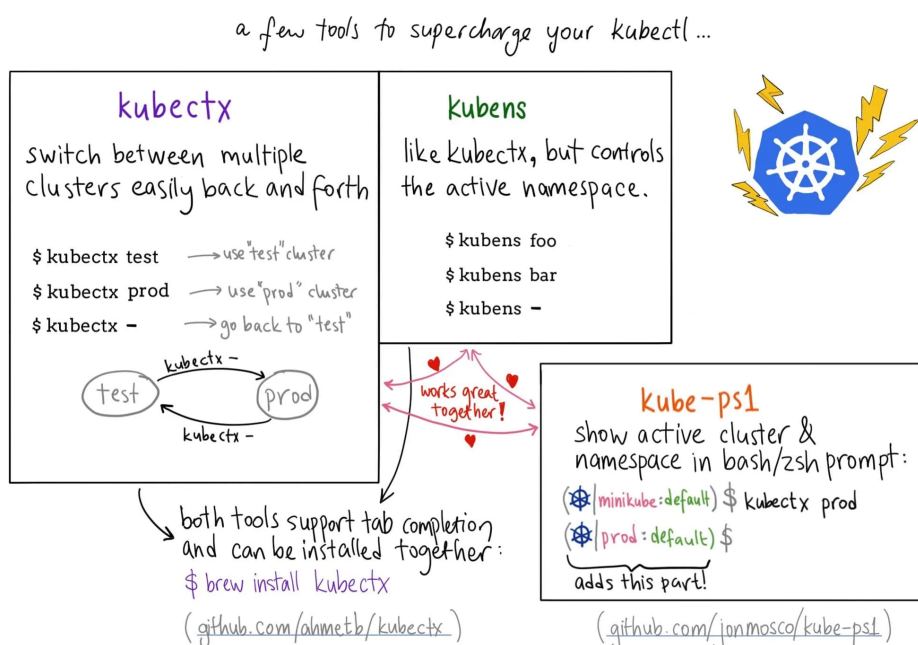 a few tools to supercharge your kubectl...
kubectx
switch between multiple
clusters easily back and forth
$ kubectx test → use "test" cluster
$ kubectx prod → use "prod" cluster
$ kubectx - → go back to "test"
kubectx -
test
prod
kubectx -
kubens
like kubectx, but controls
the active namespace.
$ kubens foo
$ kubens bar
$ kubens -
works great
together!
kube-ps1
show active cluster &
namespace in bash/zsh prompt:
(|minikube:default) $ kubectx prod
(|prod:default) $
adds this part!
both tools support tab completion
and can be installed together:
$ brew install kubectx
(github.com/ahmetb/kubectx)
(github.com/jonmosco/kube-ps1)